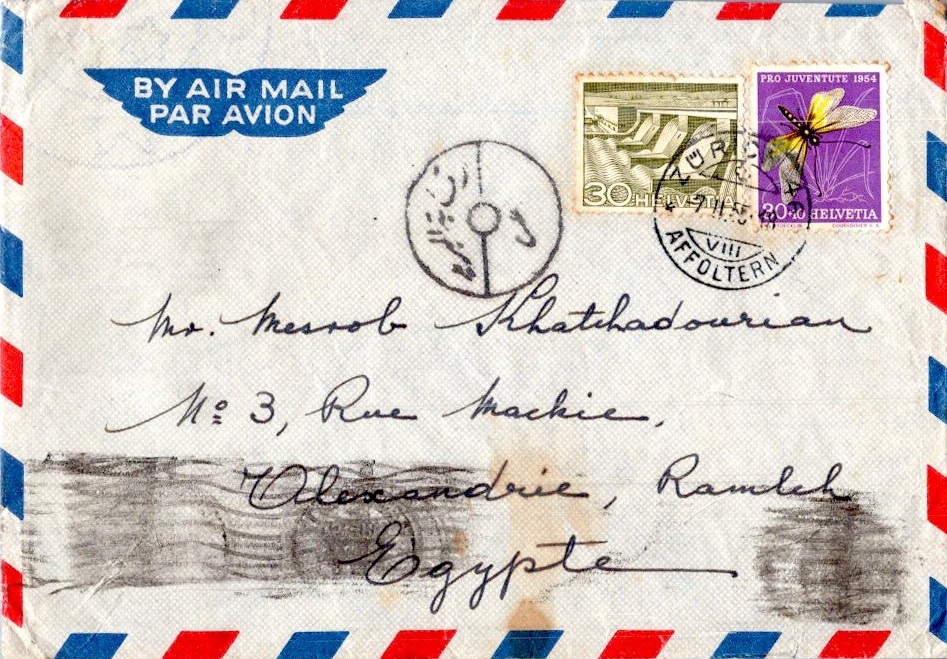 BY AIR MAIL
PAR AVION
PRO JUVENTUTE 1954
30 HELVETIA
HELVETIA
ZÜRICH 46
VIII
AFFOLTERN
Mr. Mesrob Khatchadourian
No 3, Rue Mackie,
Alexandrie, Ramleh
Egypte